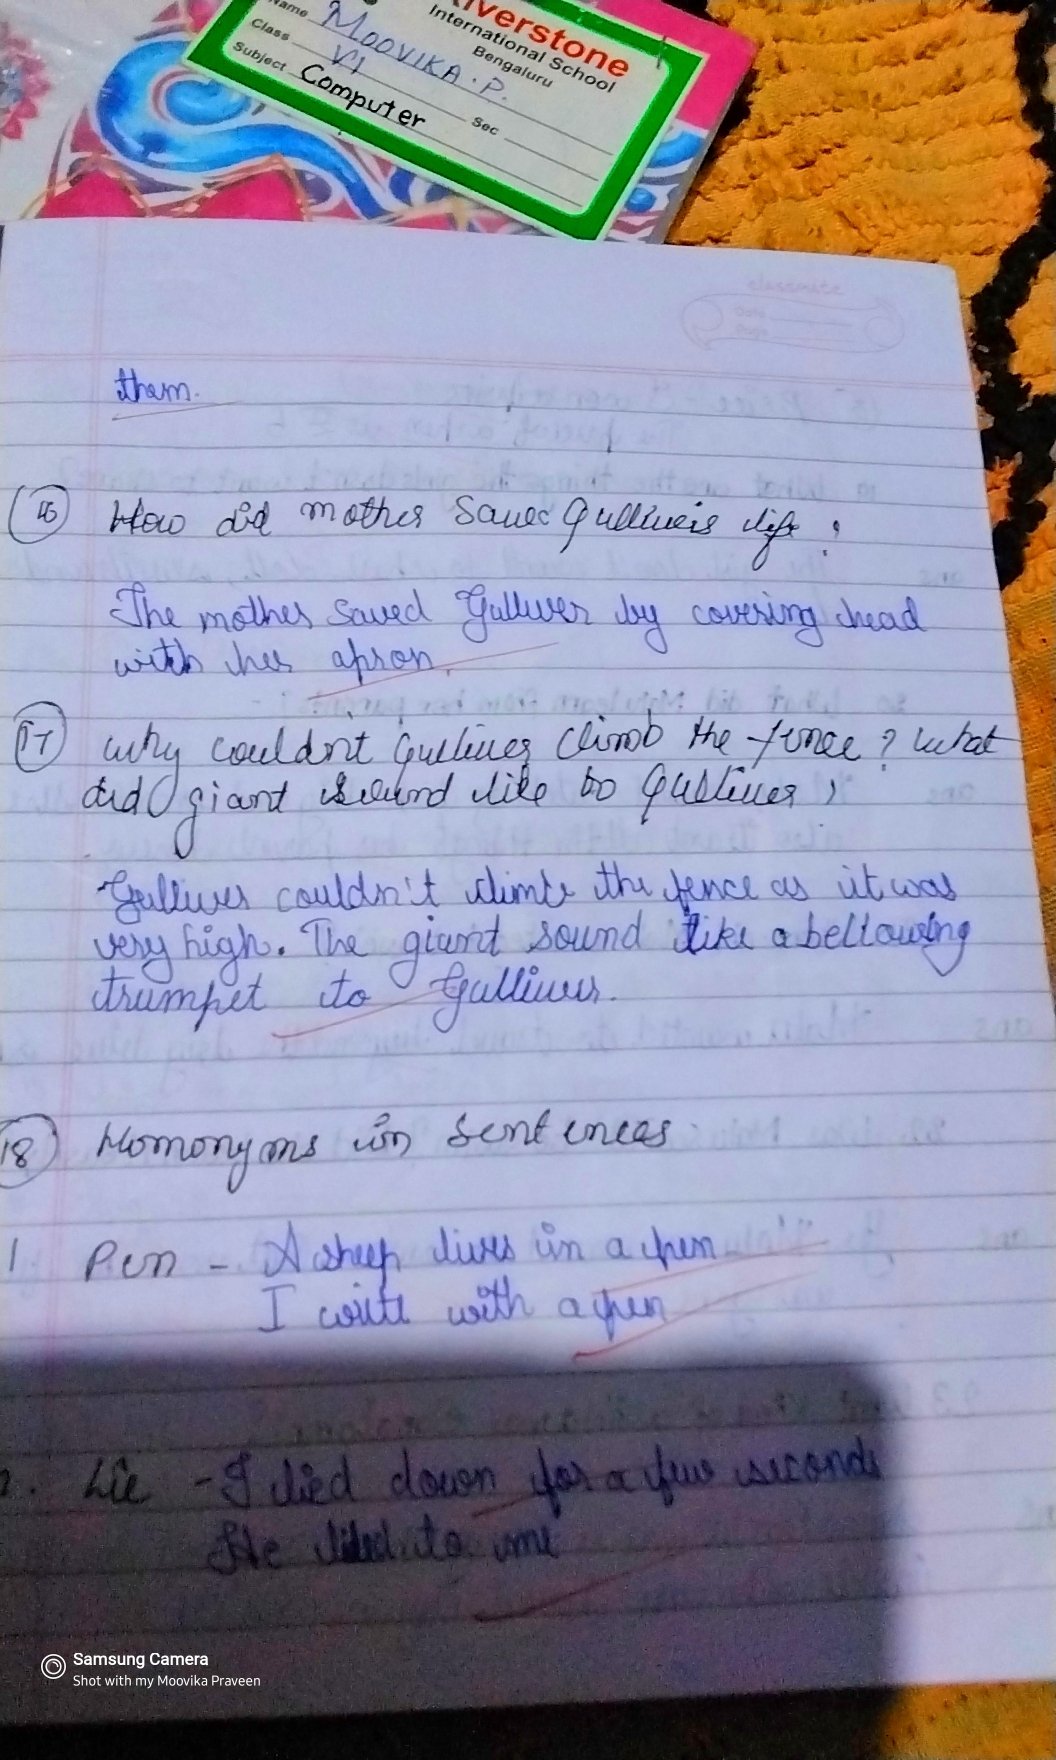 Name MOOVIKA. P.
Class VI Sec
Subject Computer
verstone
International School
Bengaluru
classmate
Date
Page
them.
16 How did mother save Gulliver's life?
The mother saved Gulliver by covering head
with her apron.
17 Why couldn't Gulliver climb the fence? What
did giant sound like to Gulliver?
Gulliver couldn't climb the fence as it was
very high. The giant sound like a bellowing
trumpet to Gulliver.
18 Homonyms in sentences
1 Pen - A sheep lives in a pen
I write with a pen
2. Lie - I lied down for a few seconds
He lied to me
Samsung Camera
Shot with my Moovika Praveen